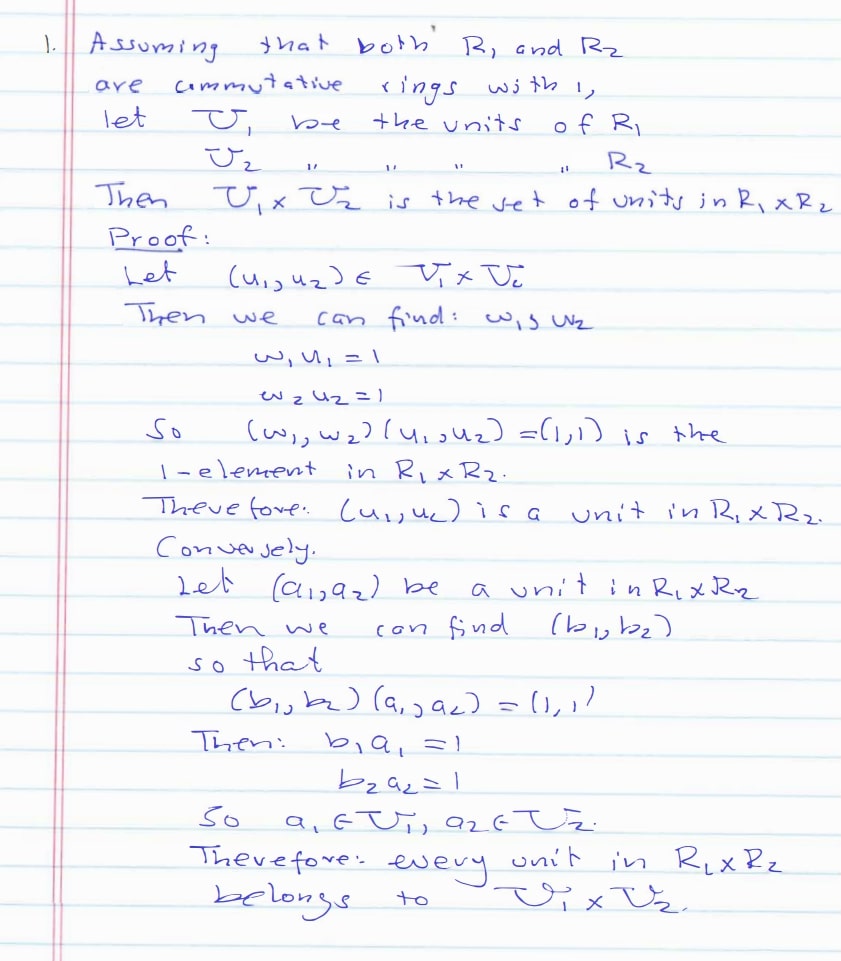 1. Assuming that both R₁ and R₂
are commutative rings with 1,
let U₁ be the units of R₁
U₂ " " " " R₂
Then U₁ x U₂ is the set of units in R₁ x R₂
Proof:
Let (u₁, u₂) ∈ U₁ x U₂
Then we can find: w₁, w₂
w₁ u₁ = 1
w₂ u₂ = 1
So (w₁, w₂)(u₁, u₂) = (1,1) is the
1-element in R₁ x R₂.
Therefore: (u₁, u₂) is a unit in R₁ x R₂.
Conversely.
Let (a₁, a₂) be a unit in R₁ x R₂
Then we can find (b₁, b₂)
so that
(b₁, b₂)(a₁, a₂) = (1,1)
Then: b₁ a₁ = 1
b₂ a₂ = 1
So a₁ ∈ U₁, a₂ ∈ U₂.
Therefore: every unit in R₁ x R₂
belongs to U₁ x U₂.